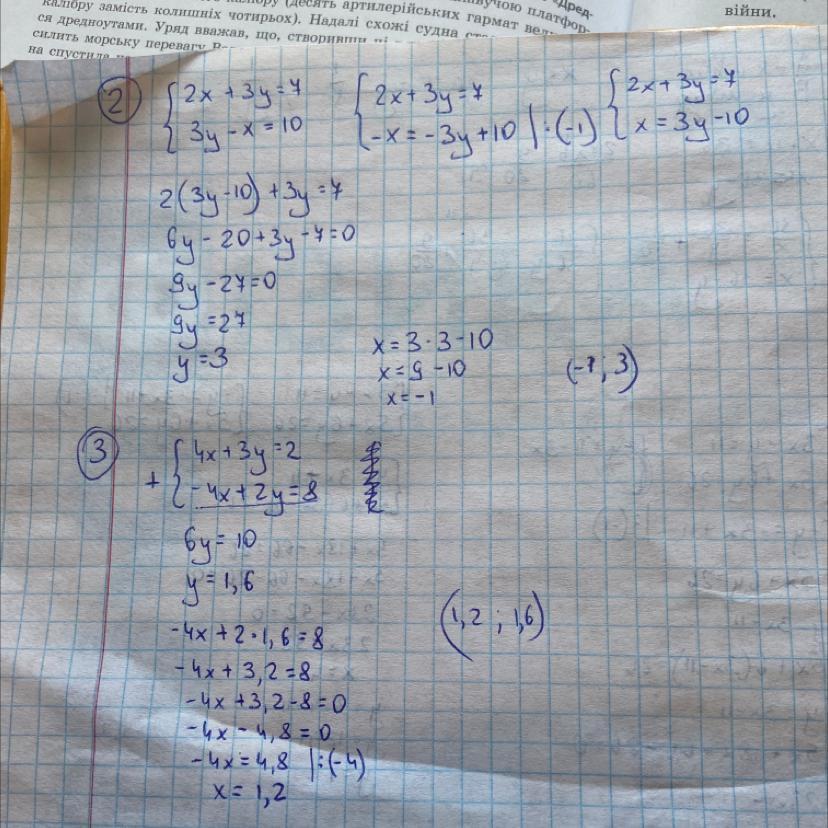 калібру замість колишніх чотирьох). Надалі схожі судна
ся дредноутами. Уряд вважав, що, створивши
силить морську перевагу
на спустила
(десять артилерійських гармат
платфор-
«Дред-
війни.
② {2x + 3y = 7 {2x + 3y = 7 {2x + 3y = 7
{3y - x = 10 {-x = -3y + 10 | : (-1) {x = 3y - 10
2(3y - 10) + 3y = 7
6y - 20 + 3y - 7 = 0
9y - 27 = 0
9y = 27
y = 3
x = 3 · 3 - 10
x = 9 - 10
x = -1
(-1; 3)
③ + {4x + 3y = 2
{-4x + 2y = 8
6y = 10
y = 1,6
-4x + 2 · 1,6 = 8
-4x + 3,2 = 8
-4x + 3,2 - 8 = 0
-4x - 4,8 = 0
-4x = 4,8 | : (-4)
x = 1,2
(1,2 ; 1,6)